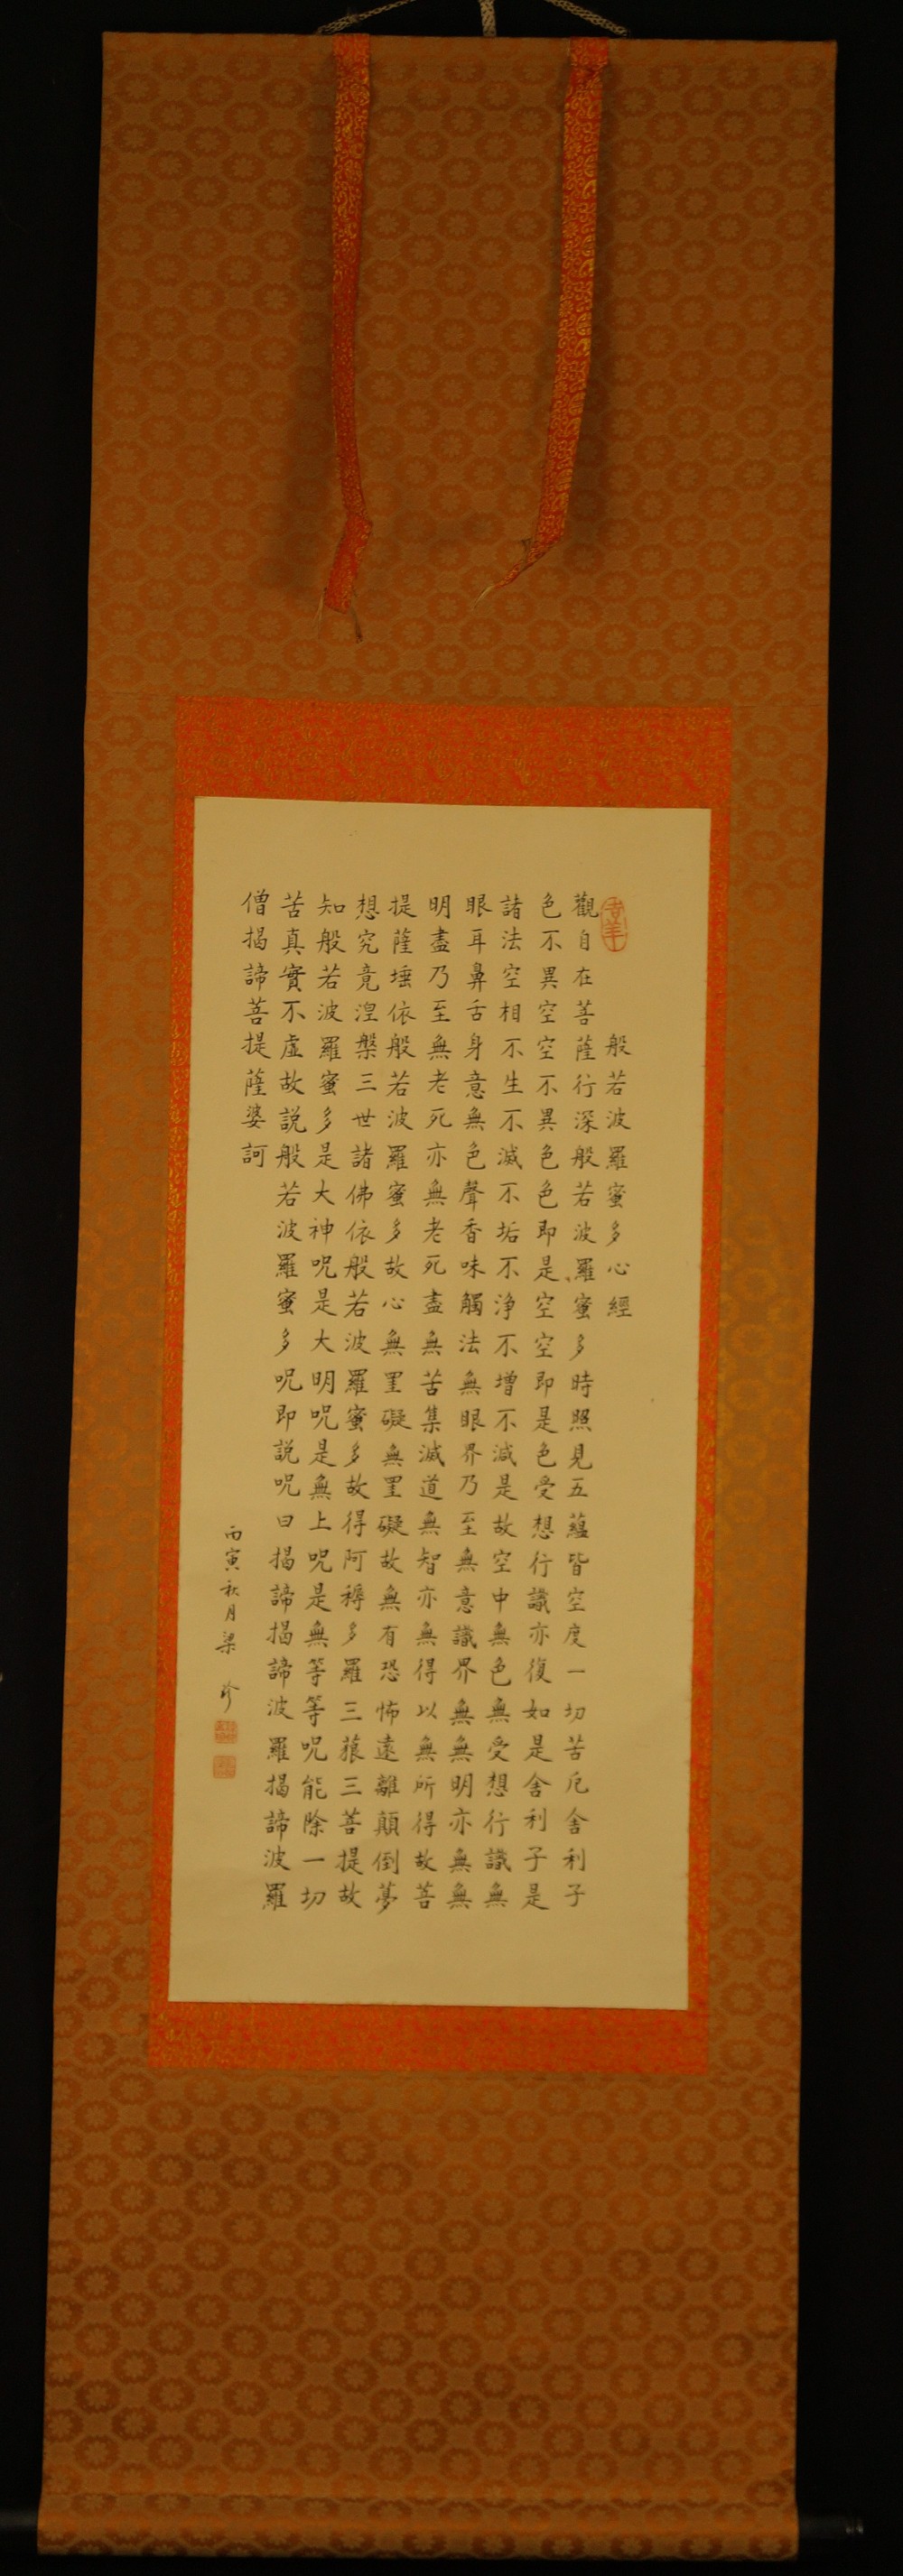 般若波羅蜜多心經
觀自在菩薩行深般若波羅蜜多時照見五蘊皆空度一切苦厄舍利子
色不異空空不異色色即是空空即是色受想行識亦復如是舍利子是
諸法空相不生不滅不垢不淨不增不減是故空中無色無受想行識無
眼耳鼻舌身意無色聲香味觸法無眼界乃至無意識界無無明亦無無
明盡乃至無老死亦無老死盡無苦集滅道無智亦無得以無所得故菩
提薩埵依般若波羅蜜多故心無罣礙無罣礙故無有恐怖遠離顛倒夢
想究竟涅槃三世諸佛依般若波羅蜜多故得阿耨多羅三藐三菩提故
知般若波羅蜜多是大神呪是大明呪是無上呪是無等等呪能除一切
苦真實不虛故説般若波羅蜜多呪即説呪曰揭諦揭諦波羅揭諦波羅
僧揭諦菩提薩婆訶
丙寅秋月梁珍